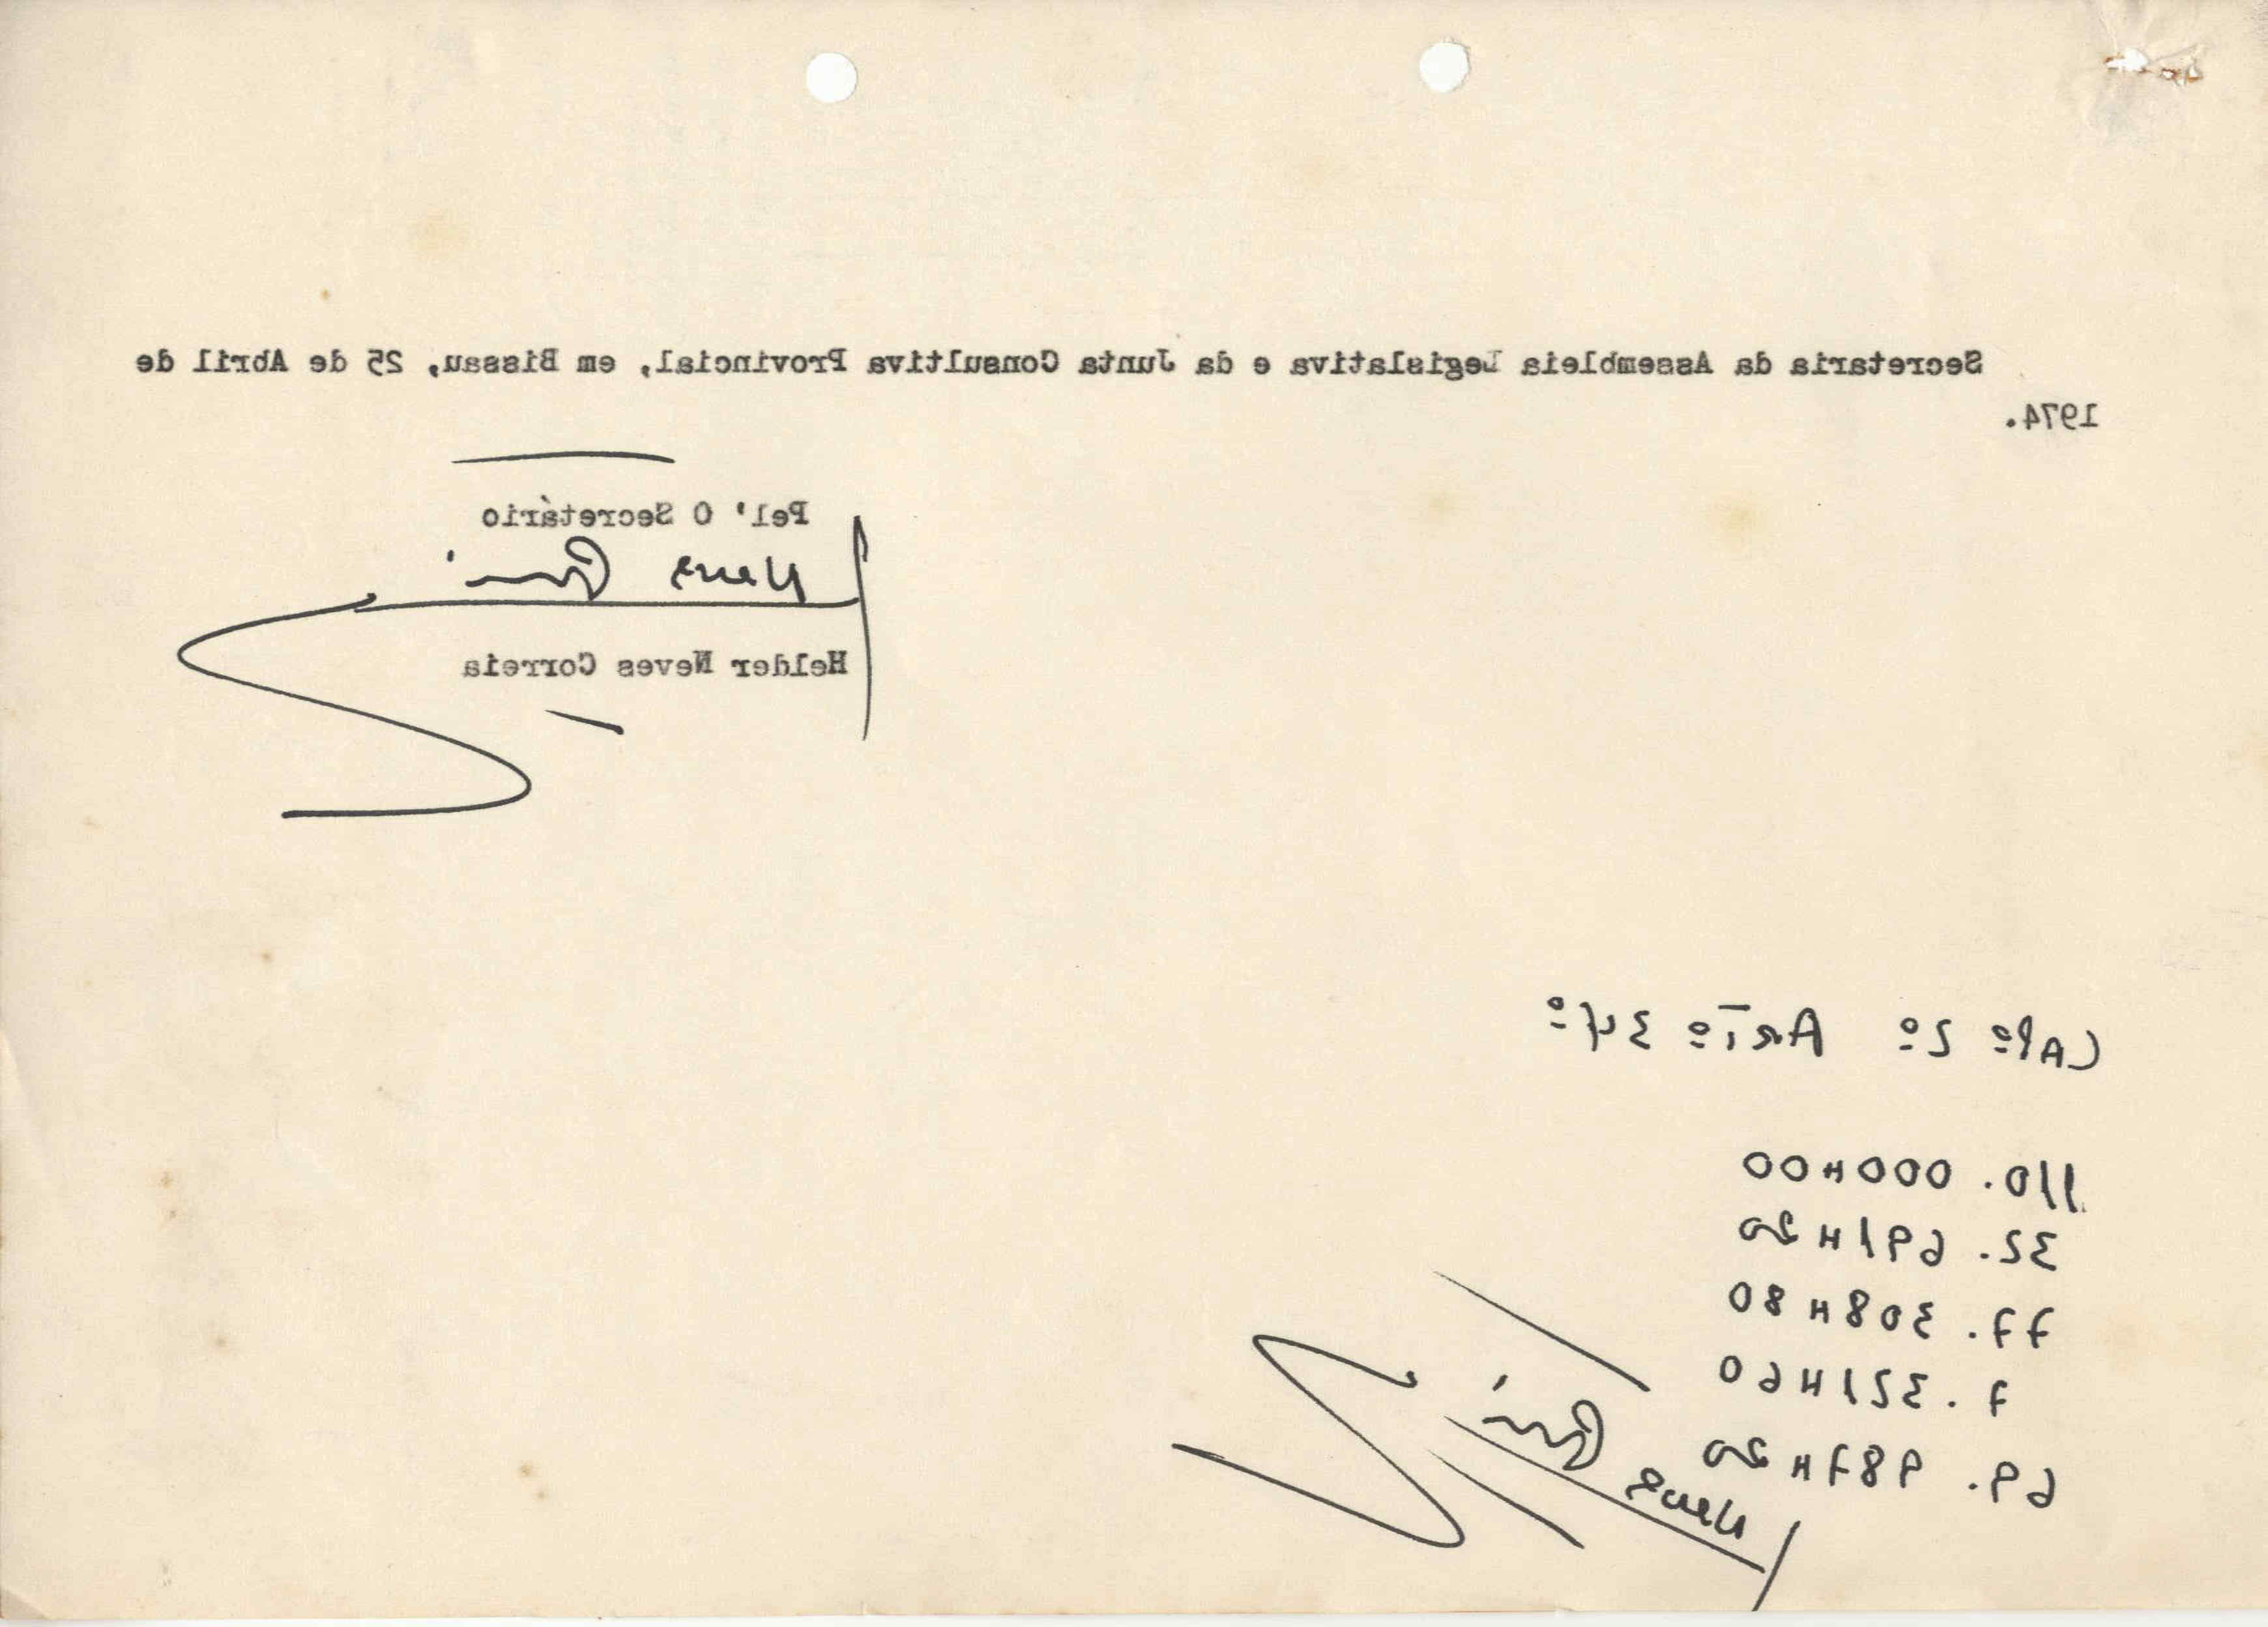 Secretaria da Assembleia Legislativa e da Junta Consultiva Provincial, em Bissau, 25 de Abril de
1974.
Pel' O Secretário
Neves
Helder Neves Correia
Capº 2º Artº 34º
110.000$00
32.691$20
77.308$80
7.321$60
69.987$20
Neves